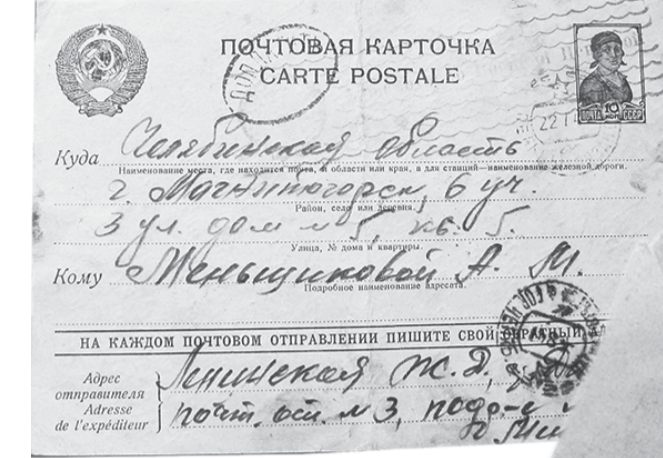 ПОЧТОВАЯ КАРТОЧКА
CARTE POSTALE
ПОЧТА 10 КОП. СССР
22
Куда Челябинская область
Наименование места, где находится почта, и области или края, а для станций—наименование железной дороги.
г. Магнитогорск, 6 уч.
Район, село или деревня.
3 ул. дом №5, кв. 5.
Улица, № дома и квартиры.
Кому Меньщиковой А. М.
Подробное наименование адресата.
НА КАЖДОМ ПОЧТОВОМ ОТПРАВЛЕНИИ ПИШИТЕ СВОЙ ОБРАТНЫЙ
Адрес
отправителя
Adresse
de l'expéditeur
Ленинская ж. д.,
почт. от. №3,